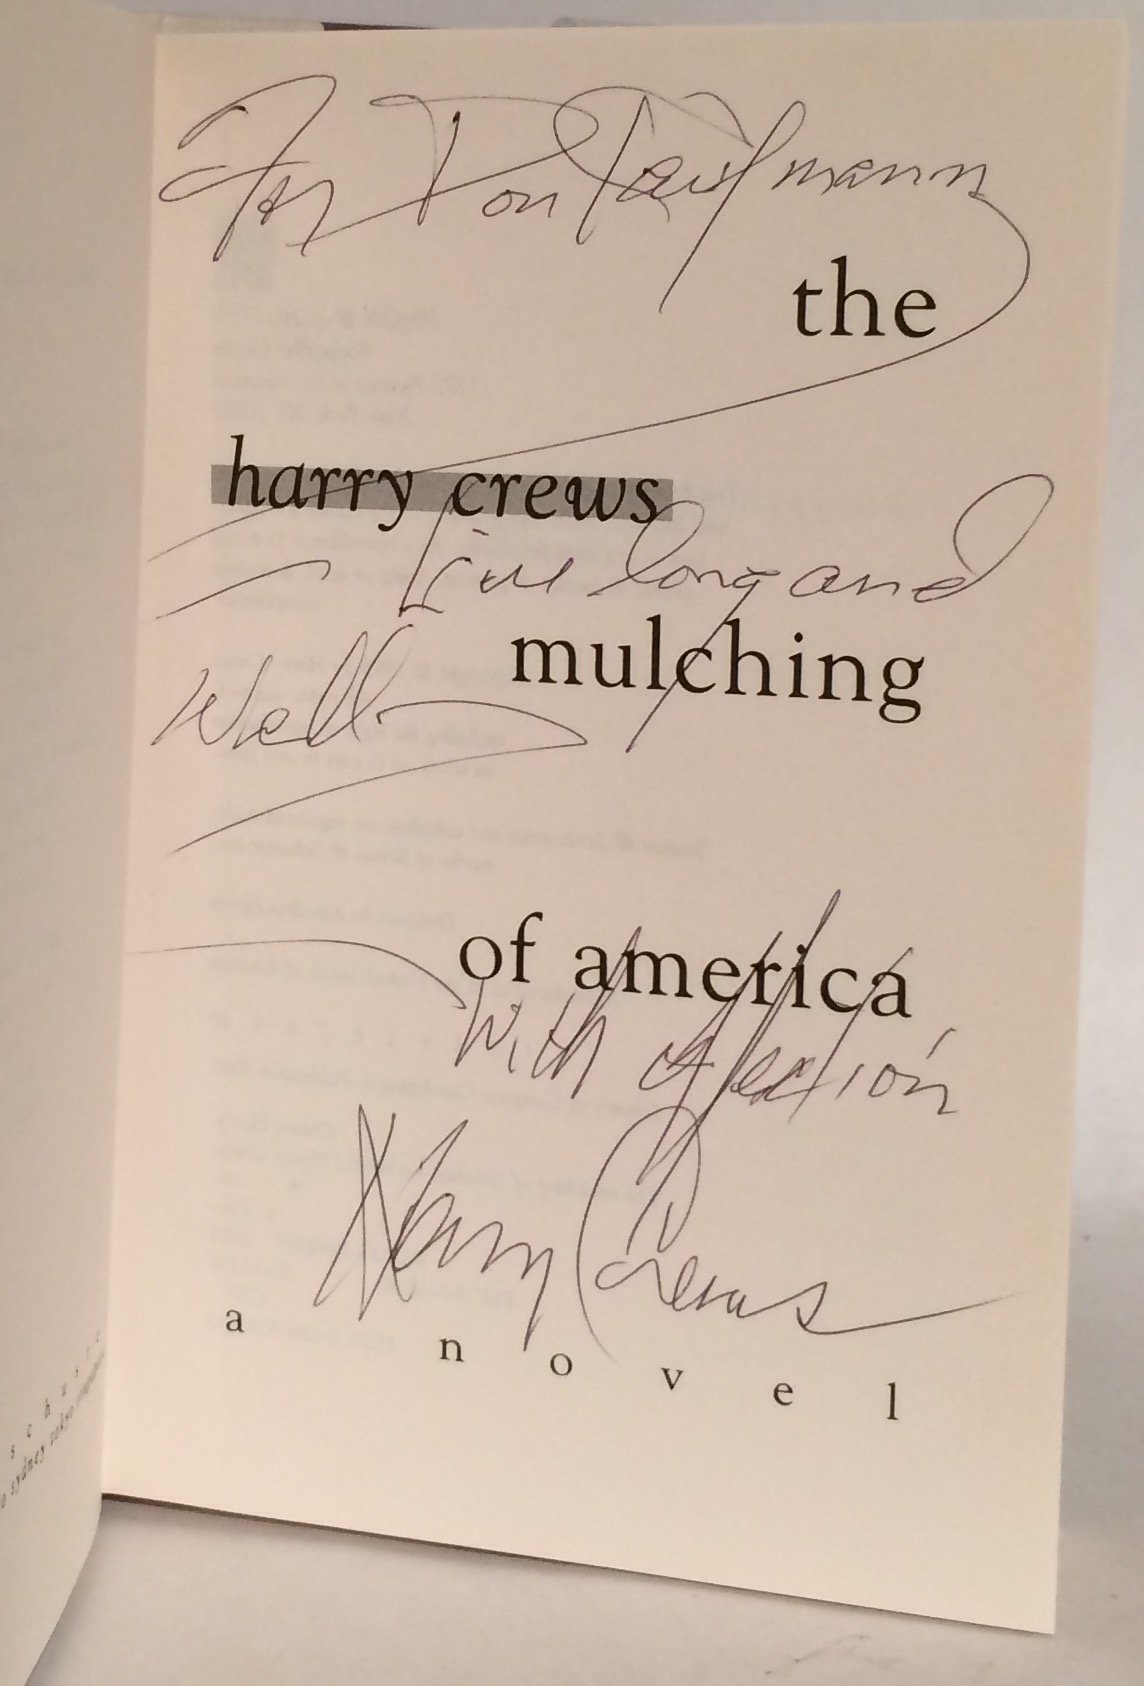 For Don Kaufmann
the
harry crews
Live long and
mulching
Well
of america
With affection
Harry Crews
a novel